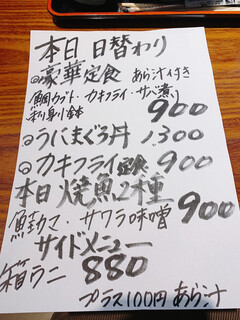 本日 日替わり
◎豪華定食 あら汁付き
鯛カブト・カキフライ・サバ煮
刺身小鉢 900
◎うにまぐろ丼 1.300
◎カキフライ定食 900
本日焼魚2種
鮭カマ・サワラ味噌 900
サイドメニュー
箱ウニ 880
プラス100円 あら汁